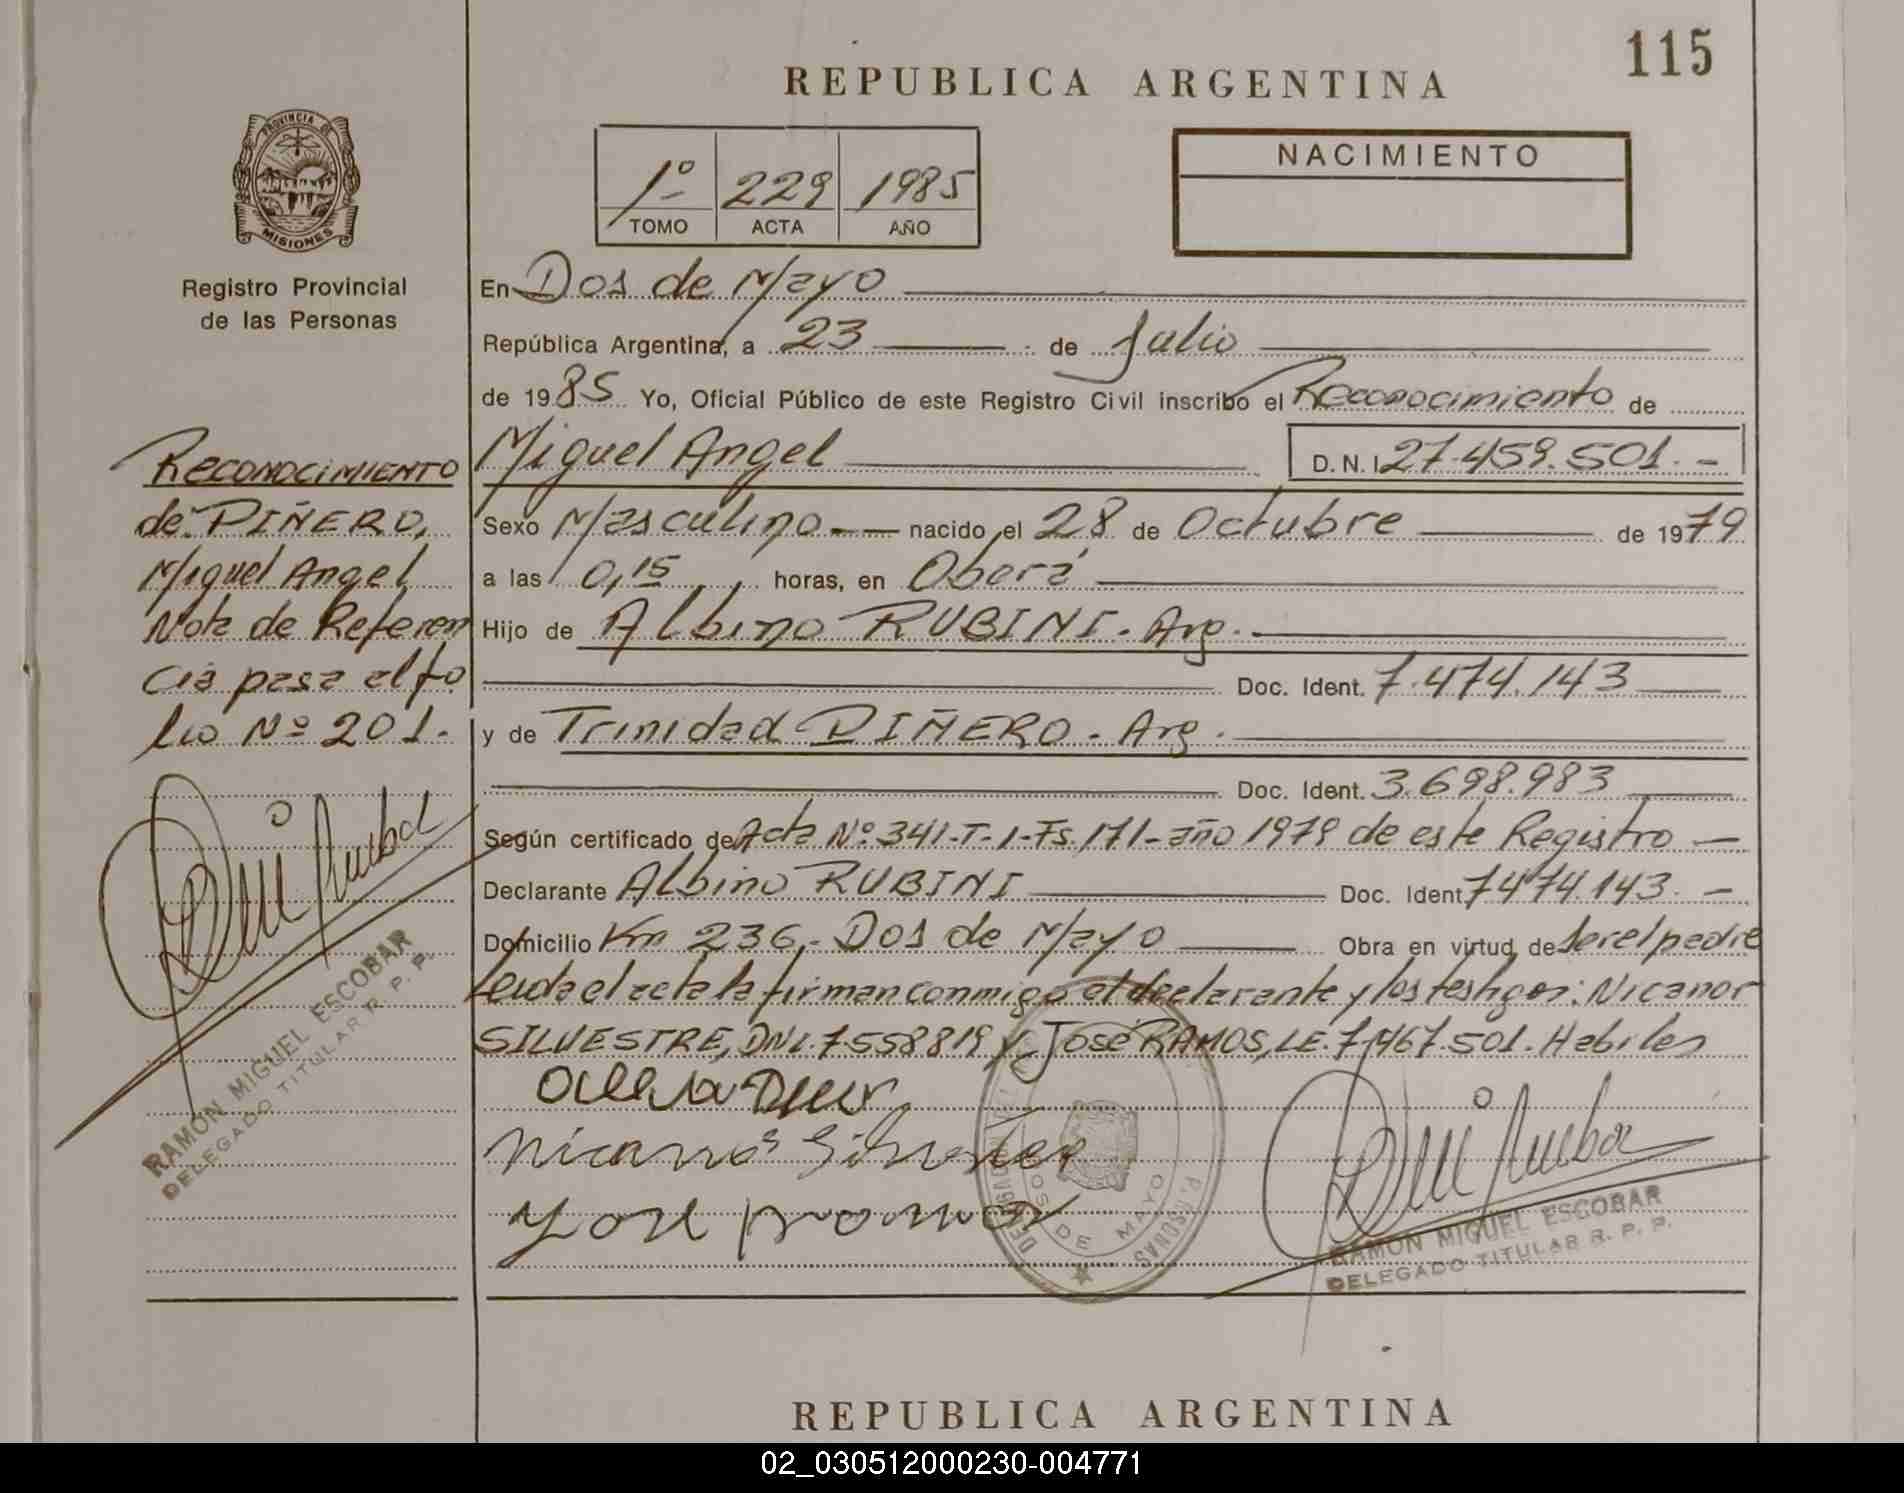 115
REPUBLICA ARGENTINA
PROVINCIA DE
MISIONES
Registro Provincial
de las Personas
1º 229 1985
TOMO ACTA AÑO
NACIMIENTO
En Dos de Mayo
República Argentina, a 23 de Julio
de 1985 Yo, Oficial Público de este Registro Civil inscribo el Reconocimiento de
Miguel Angel D.N.I. 27.459.501.-
Sexo Masculino nacido el 28 de Octubre de 1979
a las 0,15 horas, en Oberá
Hijo de Albino RUBINI. Arg.
Doc. Ident. 7.474.143
y de Trinidad PIÑERO. Arg.
Doc. Ident. 3.698.983
Según certificado de Acta Nº 341-T-1-Fs.171-año 1979 de este Registro
Declarante Albino RUBINI Doc. Ident 7474.143.-
Domicilio Km 236,- Dos de Mayo Obra en virtud de ser el padre
Leida el acta la firman conmigo el declarante y los testigos: Nicanor
SILVESTRE, DNI. 7558819 y José RAMOS, LE. 7.467.501. Habiles
RECONOCIMIENTO
de PIÑERO,
Miguel Angel
Nota de Referen
cia pasa al fo
lio Nº 201.
RAMON MIGUEL ESCOBAR
DELEGADO TITULAR R. P. P.
Nicanor Silvester
DOS DE MAYO
RAMON MIGUEL ESCOBAR
DELEGADO TITULAR R. P. P.
REPUBLICA ARGENTINA
02_030512000230-004771